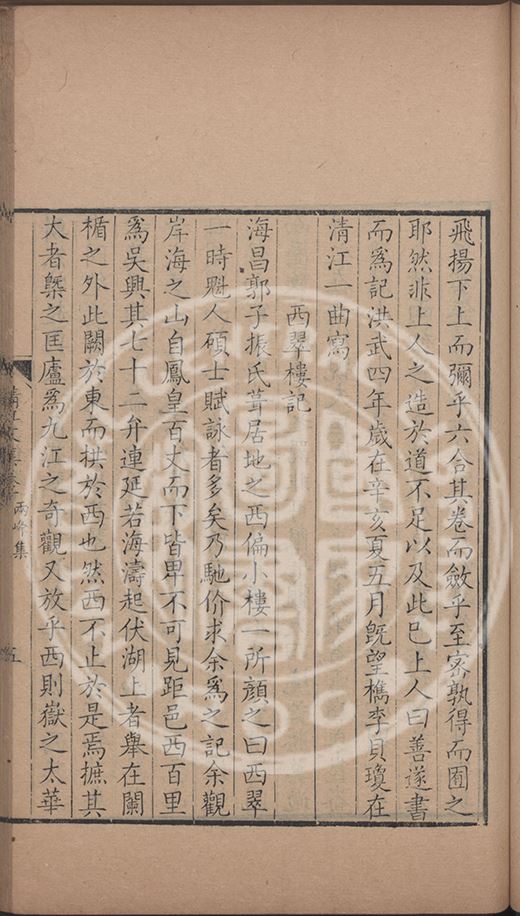 飛揚下上而彌乎六合其卷而斂乎至密孰得而囿之
耶然非上人之造於道不足以及此已上人曰善遂書
而爲記洪武四年歲在辛亥夏五月旣望檇李貝瓊在
清江一曲寫
西翠樓記
海昌郭子振氏葺居地之西偏小樓一所顔之曰西翠
一時魁人碩士賦詠者多矣乃馳价求余爲之記余觀
岸海之山自鳳皇百丈而下皆卑不可見距邑西百里
爲吳興其七十二弁連延若海濤起伏湖上者舉在闌
楯之外此闕於東而拱於西也然西不止於是焉摭其
大者槩之匡廬爲九江之奇觀又放乎西則嶽之太華
兩峰集